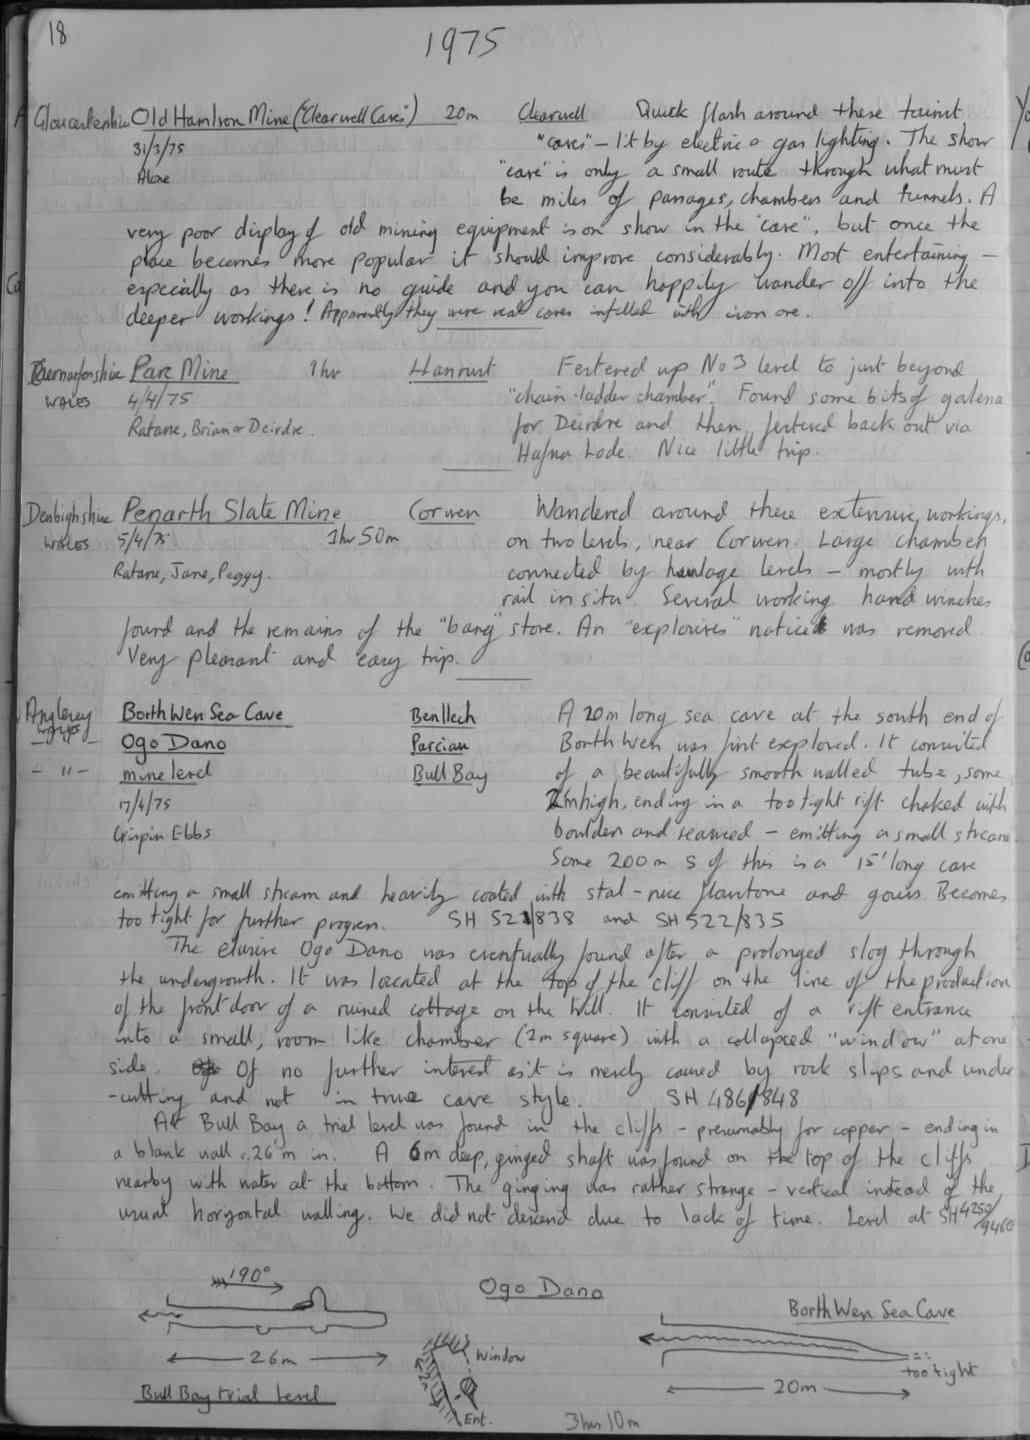 18
1975
Gloucestershire Old Ham Iron Mine ("Clearwell Caves") 20m Clearwell Quick flash around these tourist
31/3/75 "caves" - lit by electric & gas lighting. The show
Alone "cave" is only a small route through what must
be miles of passages, chambers and tunnels. A
very poor display of old mining equipment is on show in the "cave", but once the
place becomes more popular it should improve considerably. Most entertaining -
especially as there is no guide and you can happily wander off into the
deeper workings! Apparently they were real caves infilled with iron ore.
Caernarfonshire Parc Mine 1hr Llanrwst Festered up No 3 level to just beyond
WALES 4/4/75 "chain-ladder chamber". Found some bits of galena
Ratane, Brian & Deirdre. for Deirdre and then festered back out via
Hafna Lode. Nice little trip.
Denbighshire Penarth Slate Mine Corwen Wandered around these extensive workings,
WALES 5/4/75 1hr 50m on two levels, near Corwen. Large chambers
Ratane, Jane, Peggy. connected by haulage levels - mostly with
rail in situ. Several working hand winches
found and the remains of the "bang" store. An "explosives" notice was removed.
Very pleasant and easy trip.
Anglesey Borth Wen Sea Cave Benllech A 20m long sea cave at the south end of
WALES Ogo Dano Parciau Borth Wen was first explored. It consisted
- " - mine level Bull Bay of a beautifully smooth walled tube, some
17/4/75 2m high, ending in a too tight rift choked with
Crispin Ebbs boulders and seaweed - emitting a small stream.
Some 200m S of this is a 15' long cave
emitting a small stream and heavily coated with stal - nice flowstone and gours. Becomes
too tight for further progress. SH 521/838 and SH 522/835
The elusive Ogo Dano was eventually found after a prolonged slog through
the undergrowth. It was located at the top of the cliff on the line of the production
of the front door of a ruined cottage on the hill. It consisted of a rift entrance
into a small, room like chamber (2m square) with a collapsed "window" at one
side. Of no further interest as it is merely caused by rock slips and under
-cutting and not in true cave style. SH 486/848
At Bull Bay a trial level was found in the cliffs - presumably for copper - ending in
a blank wall c.26m in. A 6m deep, ginged shaft was found on the top of the cliffs
nearby with water at the bottom. The ginging was rather strange - vertical instead of the
usual horizontal walling. We did not descend due to lack of time. Level at SH 4250/9460
190°
26m
Bull Bay trial level
Ogo Dano
Window
2m
Ent.
Borth Wen Sea Cave
too tight
20m
3hrs 10m